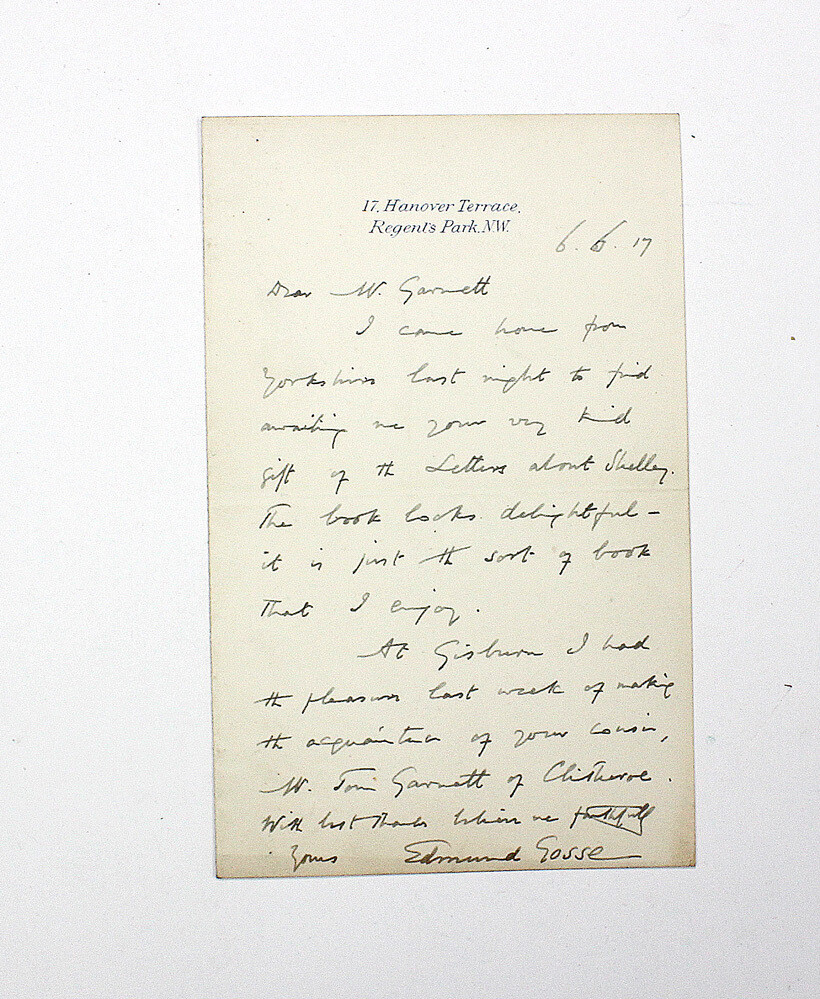 17, Hanover Terrace,
Regent's Park. N.W.
6. 6. 17
Dear Mr. Garnett
I came home from
Yorkshire last night to find
awaiting me your very kind
gift of the Letters about Shelley.
The book looks delightful –
it is just the sort of book
that I enjoy.
At Gisburn I had
the pleasure last week of making
the acquaintance of your cousin,
Mr. Tom Garnett of Clitheroe.
With best thanks believe me faithfully
Yours Edmund Gosse